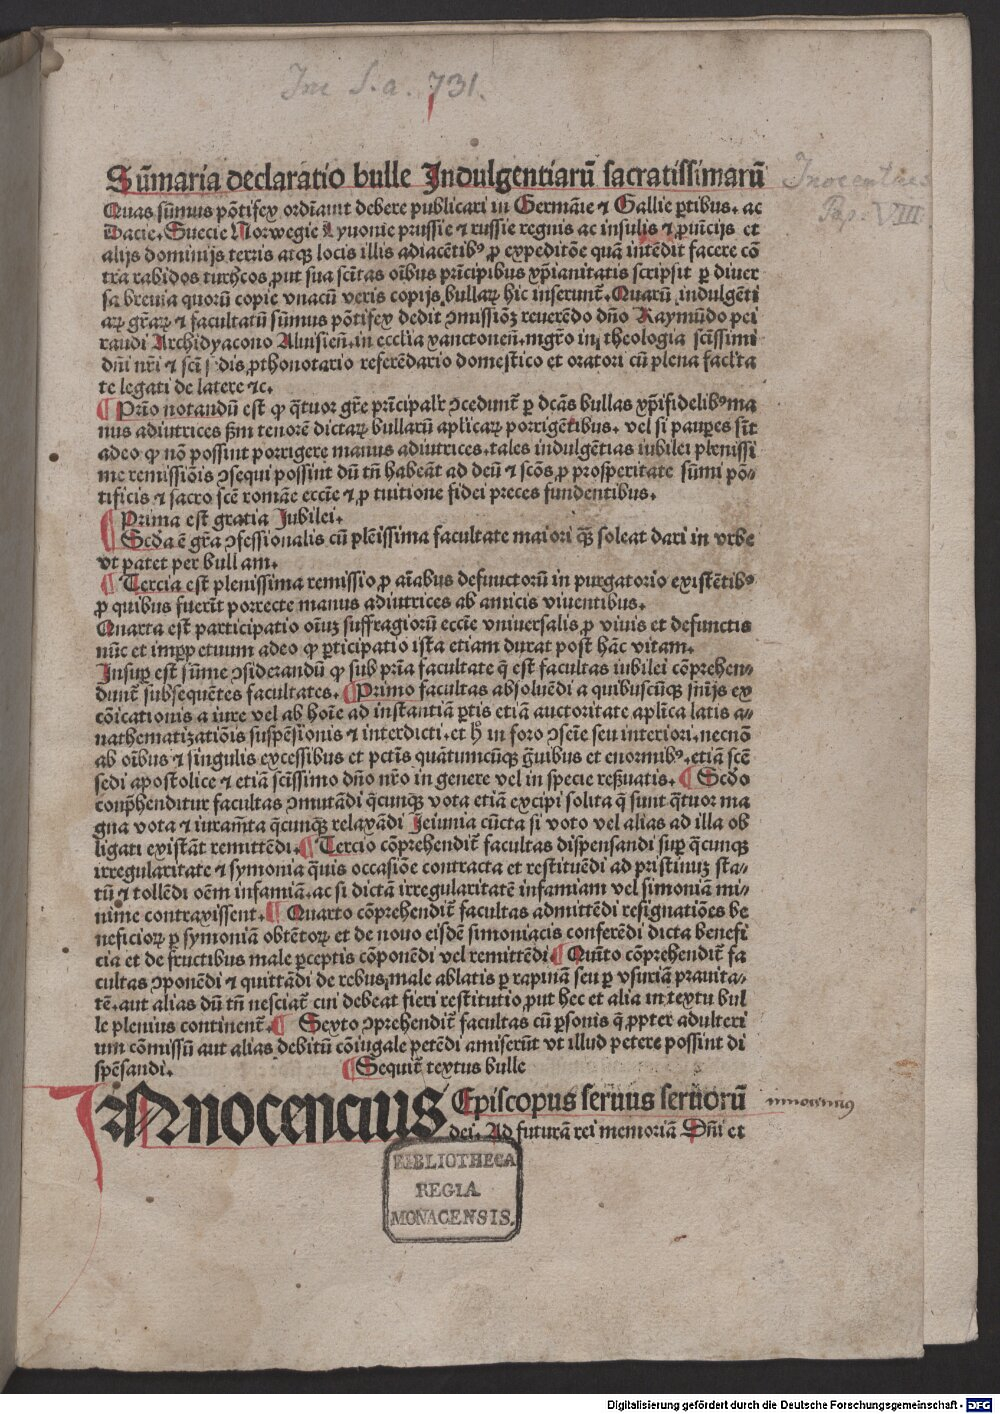 Inc S.a. 731.
Sūmaria declaratio bulle Indulgentiarū sacratissimarū
Inocentius
Pap. VIII
Quas sūmus põtifex ordīauit debere publicari in Germāie ⁊ Gallie ꝑtibus. ac
Dacie. Suecie Norwegie Lyuonie prussie ⁊ russie regnis ac insulis ⁊ ꝓuīcijs et
alijs dominijs terris atqꝫ locis illis adiacētibꝰ ꝓ expeditōe quā intēdit facere cō
tra rabidos turhcos ꝓut sua scītas oībus prīcipibus xp̄ianitatis scripsit ꝑ diuer
sa breuia quorū copie vnacū veris copijs bullaꝝ hic inserunt̄. Quarū indulgēti
aꝝ gr̄aꝝ ⁊ facultatū sūmus põtifex dedit ↄmissiōꝫ reuerēdo dn̄o Raymūdo pei
raudi Archidyacono Aluisien̄. in ecclīa xanctonen̄. mgr̄o in theologia scīssimi
dn̄i nr̄i ⁊ scī sedis ꝓthonotario referēdario domestico et oratori cū plena faclta
te legati de latere ⁊c.
¶ Prīo notandū est ꝙ q̄tuor gr̄e prīcipalꝛ ↄcedunt̄ ꝑ dc̄ās bullas xp̄ifidelibꝰ ma
nus adiutrices ẜm tenorē dictaꝝ bullarū aplicaꝝ porrigētibus. vel si pauꝑes sīt
adeo ꝙ nō possint porrigere manus adiutrices. tales indulgētias iubilei plenissi
me remissiōis ↄsequi possint dū tn̄ habeāt ad deū ⁊ scōs ꝓ prosperitate sūmi põ-
tificis ⁊ sacro scē romāe eccīe ⁊ ꝓ tuitione fidei preces fundentibus.
¶ Prima est gratia Jubilei.
Scd̄a ē gr̄a ↄfessionalis cū plēissima facultate maiori q̄ꝫ soleat dari in vrbe
vt patet per bull am.
¶ Tercia est plenissima remissio ꝓ aīabus defunctorū in purgatorio existētibꝰ
ꝓ quibus fuerīt porrecte manus adiutrices ab amicis viuentibus.
Quarta est participatio oīuꝫ suffragiorū eccīe vniuersalis ꝓ viuis et defunctis
nūc et imꝑpetuum adeo ꝙ ꝑticipatio ista etiam durat post hāc vitam.
Insuꝑ est sūme ↄsiderandū ꝙ sub prīa facultate q̄ est facultas iubilei cōprehen-
dunt̄ subsequētes facultates. ¶ Primo facultas absoluēdi a quibuscūqꝫ sn̄ijs ex
cōicationis a iure vel ab hoīe ad instantiā ꝑtis etiā auctoritate aplīca latis a-
nathematizatiōis suspēsionis ⁊ interdicti. et ꜧ in foro ↄscīe seu interiori. necnō
ab oībus ⁊ singulis excessibus et pctīs quātumcūqꝫ g̃uibus et enormibꝰ. etiā scē
sedi apostolice ⁊ etiā scīssimo dn̄o nr̄o in genere vel in specie reẜuatis. ¶ Scd̄o
conp̄henditur facultas ↄmutādi q̄cunqꝫ vota etiā excipi solita q̄ sunt q̄tuor ma
gna vota ⁊ iuram̄ta q̄cunqꝫ relaxādi Jeiunia cūcta si voto vel alias ad illa ob
ligati existāt remittēdi. ¶ Tercio cōprehendit̄ facultas dispensandi suꝑ q̄cunqꝫ
irregularitate ⁊ symonia q̄uis occasiōe contracta et restituēdi ad pristinuꝫ sta-
tū ⁊ tollēdi oēm infamiā. ac si dictā irregularitatē infamiam vel simoniā mi-
nime contraxissent. ¶ Quarto cōprehendit̄ facultas admittēdi resignatiōes be
neficioꝝ ꝑ symoniā obtētoꝝ et de nouo eisdē simoniacis conferēdi dicta benefi
cia et de fructibus male ꝑceptis cōponēdi vel remittēdi ¶ Quīto cōprehendit̄ fa
cultas ↄponēdi ⁊ quittādi de rebus male ablatis ꝑ rapinā seu ꝑ vsuriā prauita-
tē. aut alias dū tn̄ nesciat̄ cui debeat fieri restitutio ꝓut hec et alia in textu bul
le plenius continent̄. ¶ Sexto ↄprehendit̄ facultas cū ꝑsonis q̄ ꝓpter adulteri
um cōmissū aut alias debitū cōiugale petēdi amiserūt vt illud petere possint di
spēsandi. ¶ Sequit̄ textus bulle
INnocencius Episcopus seruus seruorū
innocencius
dei. Ad futurā rei memoriā Dn̄i et
BIBLIOTHECA
REGIA
MONACENSIS.
Digitalisierung gefördert durch die Deutsche Forschungsgemeinschaft - DFG